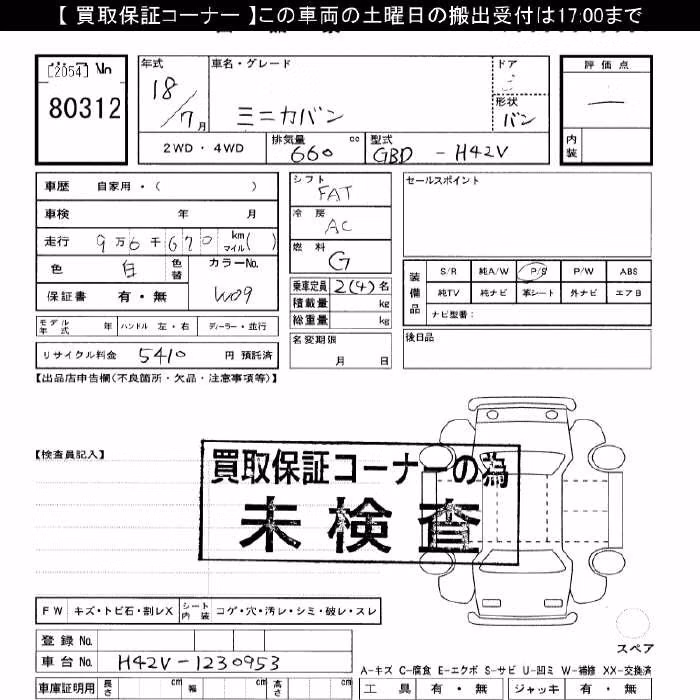 【 買取保証コーナー 】この車両の土曜日の搬出受付は17:00まで
[2054] No
80312
年式
18/7月
車名・グレード
ミニカバン
ドア
形状
バン
評価点
内装
2WD・4WD
排気量 660 cc
型式 GBD - H42V
車歴 自家用・( )
車検 年 月
走行 9万6千670 km マイル( )
色 白 色替
カラーNo. W09
保証書 有・無
モデル年式 年 ハンドル 左・右 ディーラー・並行
リサイクル料金 5410 円 預託済
シフト FAT
冷房 AC
燃料 G
乗車定員 2(4)名
積載量 kg
総重量 kg
名変期限
月 日
セールスポイント
装備品
S/R 純A/W P/S P/W ABS
純TV 純ナビ 革シート 外ナビ エアB
ナビ型番:
後日品
【出品店申告欄(不良箇所・欠品・注意事項等)】
【検査員記入】
買取保証コーナーの為
未検査
FW キズ・トビ石・割レX シート内装 コゲ・穴・汚レ・シミ・破レ・スレ
登録 No.
車台 No. H42V-1230953
車庫証明用 長さ cm 幅 cm 高さ cm
スペア
A-キズ C-腐食 E-エクボ S-サビ U-凹ミ W-補修 XX-交換済
工具 有・無 ジャッキ 有・無